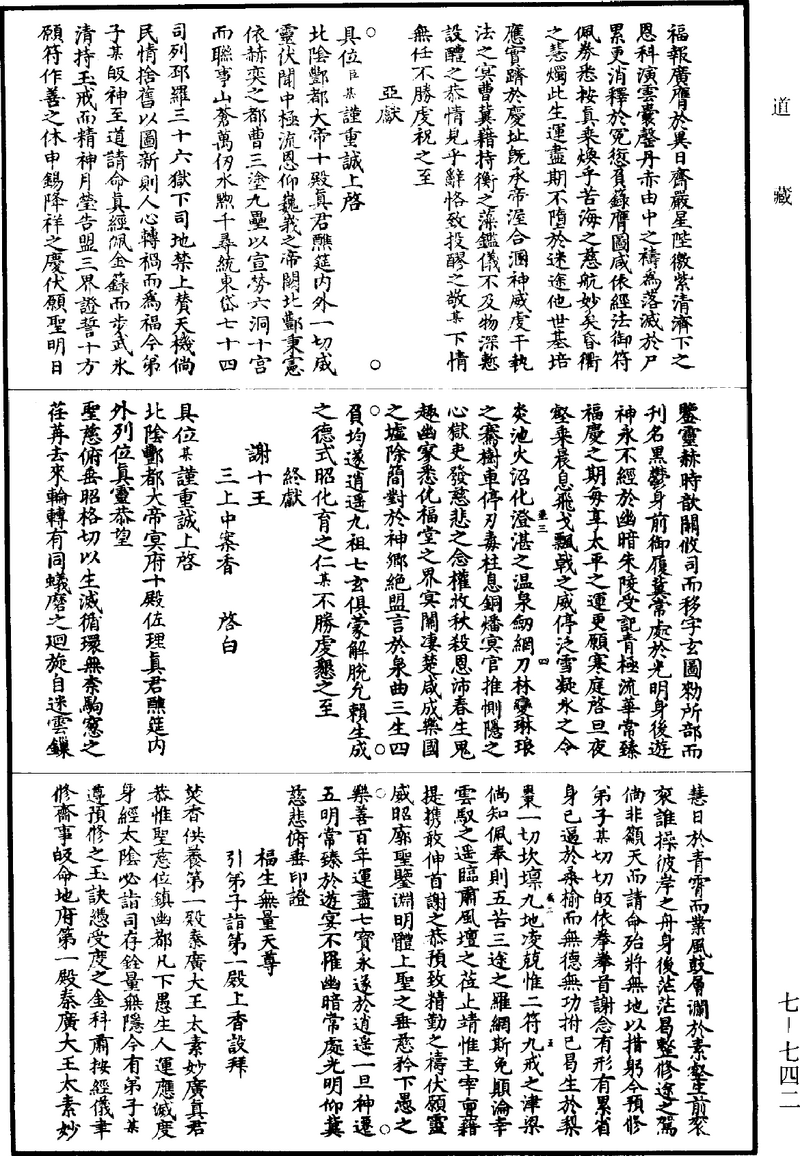 道藏
福報廣膺於異日齋嚴星陛徹紫清濟下之
恩科演雲囊罄丹赤由中之禱為落滅於尸
累更消釋於冤愆負籙膺圖咸依經法御符
佩券悉按真乘煥乎苦海之慈航妙矣昏衢
之慧燭此生運盡期不墮於迷途他世基培
應宜躋於慶址既承帝渥合溷神威虔干執
法之冥曹冀藉持衡之藻鑑儀不及物深慙
設醴之恭情見乎辭恪致投醪之敬某下情
無任不勝虔祝之至
亞獻
具位臣某謹重誠上啓
北陰酆都大帝十殿真君醮筵內外一切威
靈伏聞中極流恩仰巍峩之帝闕北酆秉憲
依赫奕之都曹三塗九壘以宣勞六洞十宮
而聯事山蒼萬仞水煦千尋統東岱七十四
司列邳羅三十六獄下司地禁上賛天機倘
民情捨舊以圖新則人心轉禍而為福今弟
子某皈神至道請命真經佩金籙而步武氷
清持玉戒而精神月瑩告盟三界證誓十方
願符作善之休申錫降祥之慶伏願聖明日
鑒靈赫時歆關攸司而移字玄圖勑所部而
刊名黑鬱身前御履冀常處於光明身後遊
神永不經於幽暗朱陵受記青極流華常臻
福慶之期每享太平之運更願寒庭啓旦夜
壑乘晨息飛戈飄戟之威停泛雪凝氷之令
炎池火沼化澄湛之温泉劒網刀林變琳琅
之騫樹車停刃毒柱息銅燔冥官推惻隱之
心獄吏發慈悲之念權收秋殺恩沛春生鬼
趣幽家悉化福堂之界冥關凄楚咸成樂國
之墟除簡對於神鄉絶盟言於泉曲三生四
負均遂逍遥九祖七玄俱蒙解脫允賴生成
之德式昭化育之仁某不勝虔懇之至
終獻
謝十王
三上中案香 啓白
具位某謹重誠上啓
北陰酆都大帝冥府十殿佐理真君醮筵內
外列位真靈恭望
聖慈俯垂昭格切以生滅循環無柰駒窻之
荏苒去來輪轉有同蟻磨之迴旋自迷雲鏁
慧日於青霄而業風鼓層瀾於素壑生前衮
衮誰操彼岸之舟身後茫茫曷整修途之駕
倘非籲天而請命殆將無地以措躬今預修
弟子某切切皈依拳拳首謝念有形有累省
身已逼於桑榆而無德無功拊己曷生於梨
棗一切坎壈九地凌兢惟二符九戒之津梁
倘知佩奉則五苦三途之羅網斯免顛淪幸
雲馭之遥臨肅風壇之莅止靖惟主宰亶藉
提携敢伸首謝之恭預致精勤之禱伏願靈
威昭廓聖鑒淵明體上聖之垂慈矜下愚之
樂善百年運盡七寳永遂於逍遥一旦神遷
五明常臻於遊宴不罹幽暗常處光明仰冀
慈悲俯垂印證
福生無量天尊
引弟子詣第一殿上香設拜
焚香供養第一殿秦廣大王太素妙廣真君
恭惟聖慈位鎮幽都凡下愚生人運應滅度
身經太陰必詣司存銓量無隱今有弟子某
遵預修之玉訣憑受度之金科肅按經儀聿
修齋事皈命地府第一殿秦廣大王太素妙
七－七四二